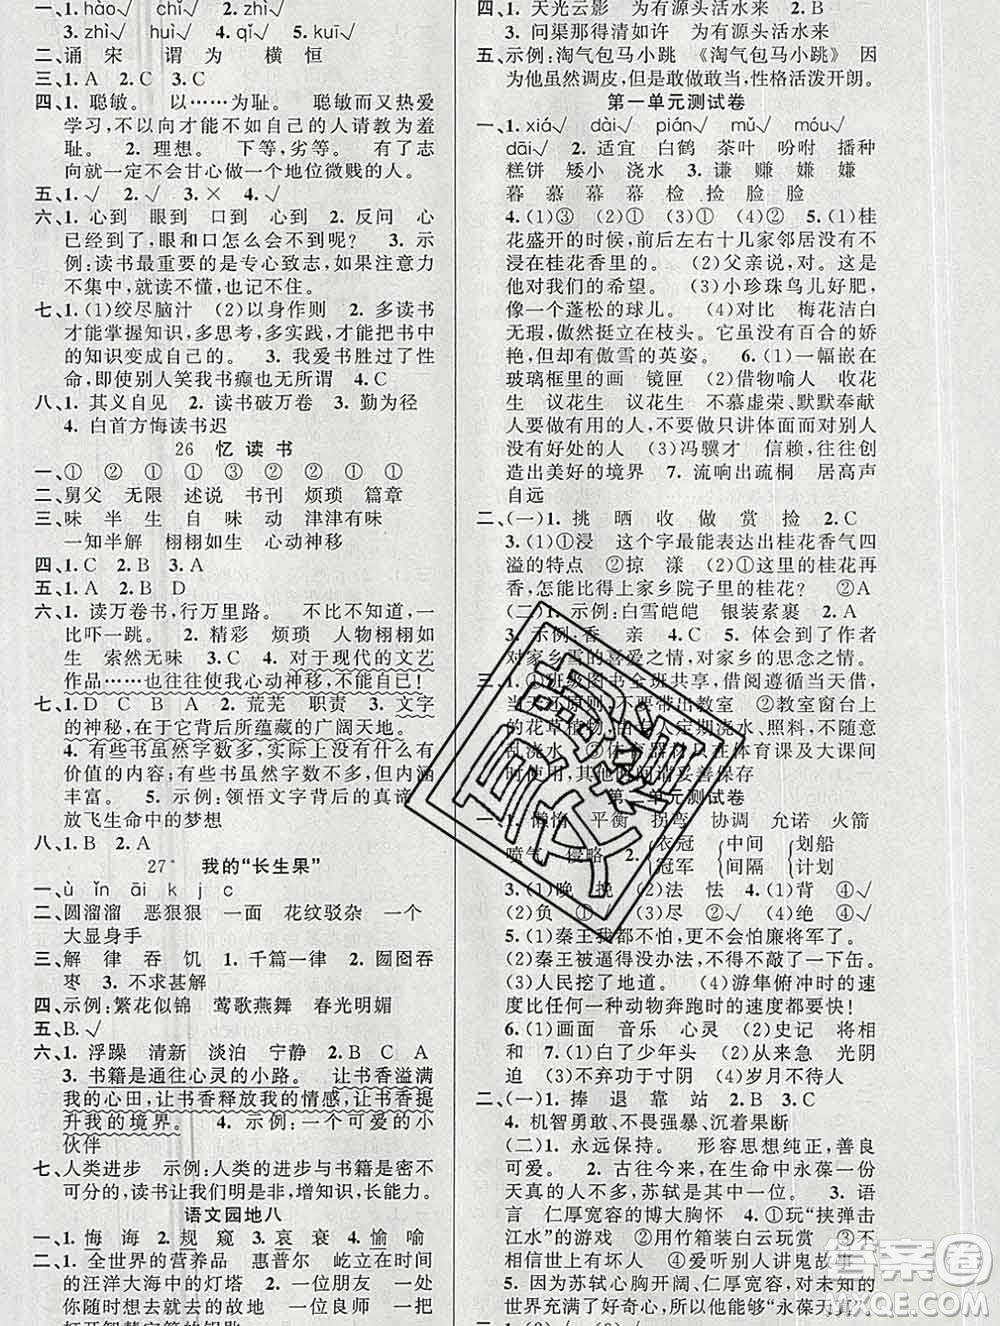 一、1. hào√ chǐ√ shí√
3. zhì√ huì√ 4. qǐ√ 5. kuī√
二、诵 宋 谓 为 横 恒
三、1. A 2. C 3. C
四、1. 聪敏。 以……为耻。 聪敏又热爱
学习,不以向才能不如自己的人请教为羞
耻。 2. 理想。 下等,劣等。 有了志
向就一定不会甘心做一个地位微贱的人。
五、1. √ 2. √ 3. × 4. √
六、1. 心到 眼到 口到 心到 2. 反问 心
已经到了,眼和口怎么会不到呢? 3. 示
例:读书最重要的是专心致志,如果注意力
不集中,就读不懂,也记不住。
七、1. (1)绞尽脑汁 (2)以身作则 2. 多读书
才能掌握知识,多思考,多实践,才能把书中
的知识变成自己的。 3. 我爱书胜过了性
命,即使别人笑我书癫也无所谓 4. C
八、1. 其义自见 2. 读书破万卷 3. 勤为径
4. 白首方悔读书迟
26 忆读书
一、① ② ① ③ ① ② ①
二、舅父 无限 述说 书刊 烦琐 篇章
三、味 半 生 自 味 动 津津有味
一知半解 栩栩如生 心动神移
四、1. C 2. B 3. A
五、1. A B D
六、1. 读万卷书,行万里路。 不比不知道,一
比吓一跳。 2. 精彩 烦琐 人物栩栩如
生 索然无味 3. C 4. 对于现代的文艺
作品……也往往使我心动神移,不能自已!
七、1. D C B A 2. 荒芜 职责 3. 文字
的神秘,在于它背后所蕴藏的广阔天地。
4. 有些书虽然字数多,实际上没有很多有
价值的内容;有些书虽然字数不多,但内涵
丰富。 5. 示例:领悟文字背后的真谛
放飞生命中的梦想
八、1. B 2. A
27 我的“长生果”
一、ù ǐn āi k j c
二、圆溜溜 恶狠狠 一面 花纹驳杂 一个个
大显身手
三、解 律 吞 饥 1. 千篇一律 2. 囫囵吞
枣 3. 不求甚解
四、示例:繁花似锦 莺歌燕舞 春光明媚
五、B. √
六、1. 浮躁 清新 淡泊 宁静 2. B C A
3. 书籍是通往心灵的小路。 让书香溢满
我的心田,让书香释放我的情感,让书香提
升我的境界。 4. 示例:一个可爱的小
伙伴
七、人类进步 示例:人类的进步与书籍是密不
可分的,读书让我们明是非,增知识,长能力。
语文园地八
一、1. 悔 海 2. 规 窥 3. 哀 衰 4. 愉 喻
二、1. 全世界的营养品 惠普尔 屹立在时间
的汪洋大海中的灯塔 2. 一位朋友 带
你随时想去就去的故地 一位老师 一
四、1. 天光云影 为有源头活水来 2. B
3. 问渠那得清如许 为有源头活水来
五、示例:淘气包马小跳 《淘气包马小跳》 因
为他虽然调皮,但是敢做敢当,性格活泼开朗。
第一单元测试卷
一、1. xiá√ dài√ pián√ mǔ√ móu√
dāi√ 2. 适宜 白鹤 茶叶 吩咐 播种
糕饼 矮小 浇水 3. 谦 赚 嫌 嫌
暮 慕 幕 幕 检 捡 脸 脸
4. (1)③ (2)① (3)② (4)② 5. (1)桂
花盛开的时候,前后左右十几家邻居没有不
浸在桂花香里的。 (2)父亲说,对。这是
他对我们的希望。 (3)小珍珠鸟儿好肥,
像一个蓬松的球儿。 (4)对比 梅花洁白
无瑕,傲然挺立在枝头。它虽没有百合的娇
艳,但有傲雪的英姿。 6. (1)一幅嵌在
玻璃框里的画 镜匣 (2)借物喻人 收花
生 议花生 不慕虚荣、默默奉献 人
要做有用的人,不要做只讲体面而对别人没有
好处的人 (3)冯骥才 信赖,往往创
造出美好的境界 7. 流响出疏桐 居高声
自远
二、(一)1. 挑 晒 收 做 赏 捡 2. C
3. (1)①浸 这个字最能表达出桂花香气四
溢的特点 ②掠 漾 (2)①这里的桂花再
香,怎能比得上家乡院子里的桂花? ②A
(二)1. 示例:白雪皑皑 银装素裹 2. A
3. 示例:香 亲 4. C 5. 体会到了作者
对家乡雪的喜爱之情,对家乡的思念之情。
三、①班级图书全班共享,借阅遵循当天借,
当天还原则,不要带出教室 ②教室窗台上
的花草植物,由专人定期浇水、照料,不能随意
乱浇水 ③体育器材只在体育课及大课间
时使用,其他时间请妥善保存
第二单元测试卷
一、1. 懒惰 平衡 拐弯 协调 允诺 火箭
喷气 侵略 2. 衣冠 中间 划船
冠军 间隔 计划
3. (1)晚 挽 (2)法 怯 4. (1)背 ④√
(2)负 ① (3)尽 ②√ (4)绝 ④√
5. (1)秦王我都不怕,更不会怕廉将军了。
(2)秦王被逼得没办法,不得不敲了一下缶。
(3)人民挖了地道。 (4)游隼俯冲时的速
度比任何一种动物奔跑时的速度都要快!
6. (1)画面 音乐 心灵 (2)史记 将相
和 7. (1)白了少年头 (2)从来急 光阴
迫 (3)不弃功于寸阴 (4)岁月不待人
二、(一)1. 捧 退 靠 站 2. B 3. C
4. 机智勇敢、不畏强暴、沉着果断
(二)1. 永远保持。 形容思想纯正,善良
可爱。 2. 古往今来,在生命中永葆一份
天真的人不多,苏轼是其中的一位。 3. 语
言 仁厚宽容的博大胸怀 4. ①玩“挟弹击
江水”的游戏 ②用竹箱装白云玩赏 ③甚
至世上有坏人 ④爱听别人讲鬼故事
5. 因为苏轼心胸开阔、仁厚宽容,对未知的
世界充满了好奇心,所以他能够“永葆天真”
答案圈
MXQE.COM